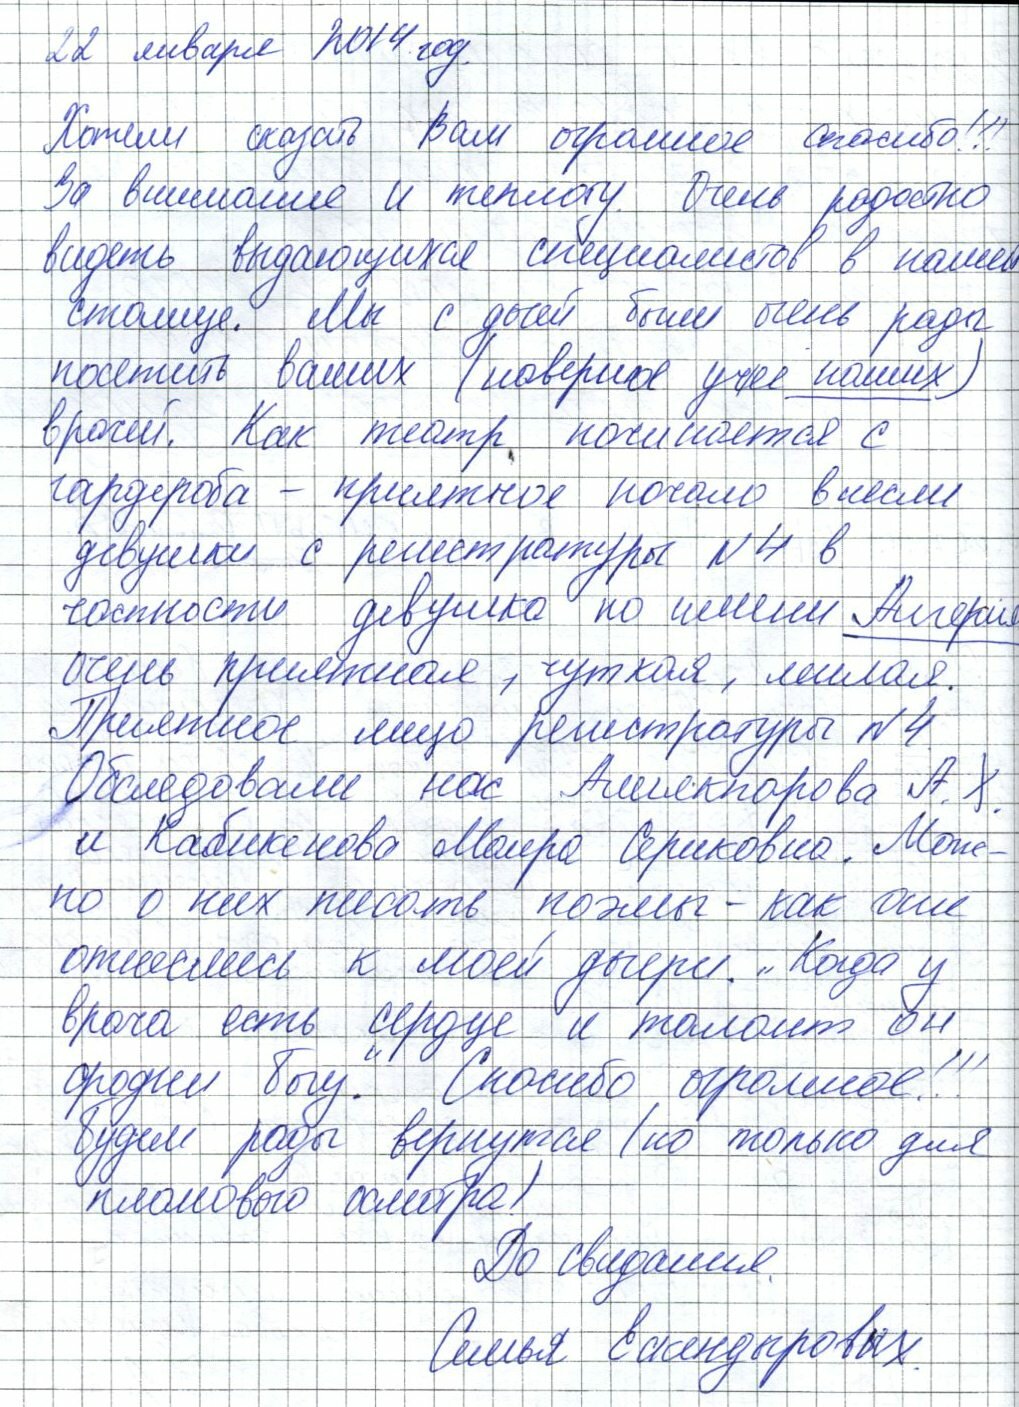 22 января 2014 год.
Хотели сказать Вам огромное спасибо!!!
За внимание и теплоту. Очень радостно
видеть выдающихся специалистов в нашей
столице. Мы с дочей были очень рады
посетить ваших (наверное уже наших)
врачей. Как театр начинается с
гардероба – приятное начало внесли
девушки с регистратуры №4 в
частности девушка по имени
очень приятная, чуткая, милая.
Приятное лицо регистратуры №4
Обследовали нас Алиякпарова А.Х.
и Кабикенова Маира Сериковна. Мож-
но о них писать поэмы – как они
отнеслись к моей дочери. „Когда у
врача есть сердце и талант он
сродни богу." Спасибо огромное!!!
Будем рады вернутся (но только для
планового осмотра)
До свидания.
Семья